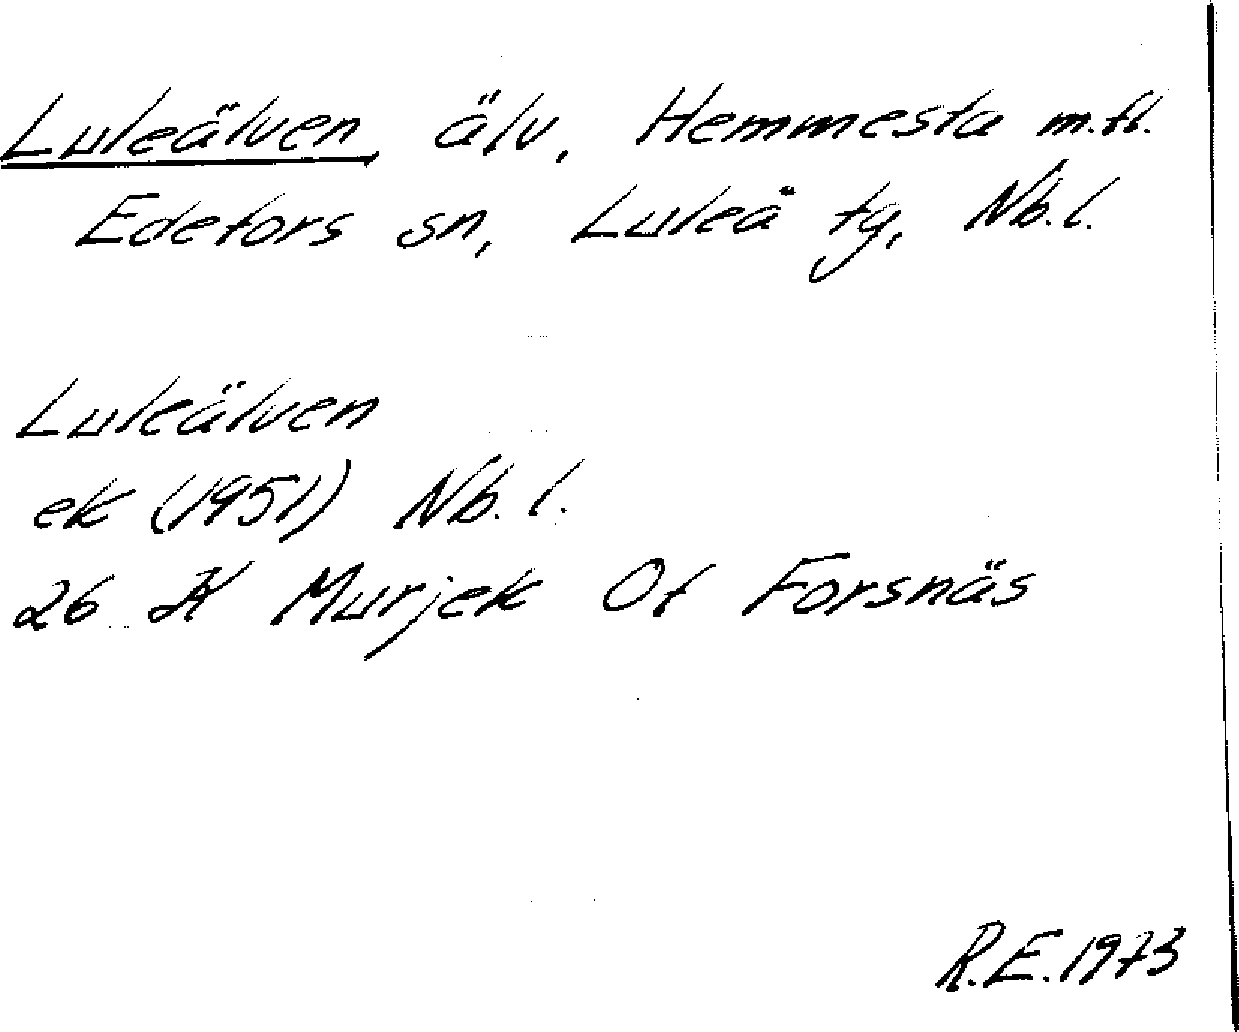 Luleälven, älv, Hemmesta m.fl.
Edefors sn, Luleå tg, Nb.l.
Luleälven
ek (1951) Nb.l.
26 K Murjek Of Forsnäs
R.E. 1973